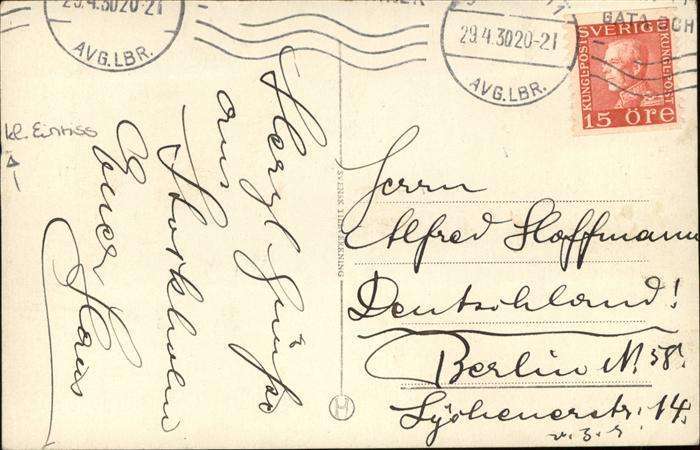 29.4.30 20-21
AVG.LBR.
29.4.30 20-21
AVG.LBR.
GATA OCH
SVERIGE
KUNGL·POST
KUNGL·POST
15 ÖRE
kl. Einriss
Herzl. Grüße
aus
Stockholm
Euer Hans
SVENSK TILLVERKNING
H
Herrn
Alfred Hoffmann
Deutschland!
Berlin N. 58.
Lychenerstr. 14.
v. 3. r.